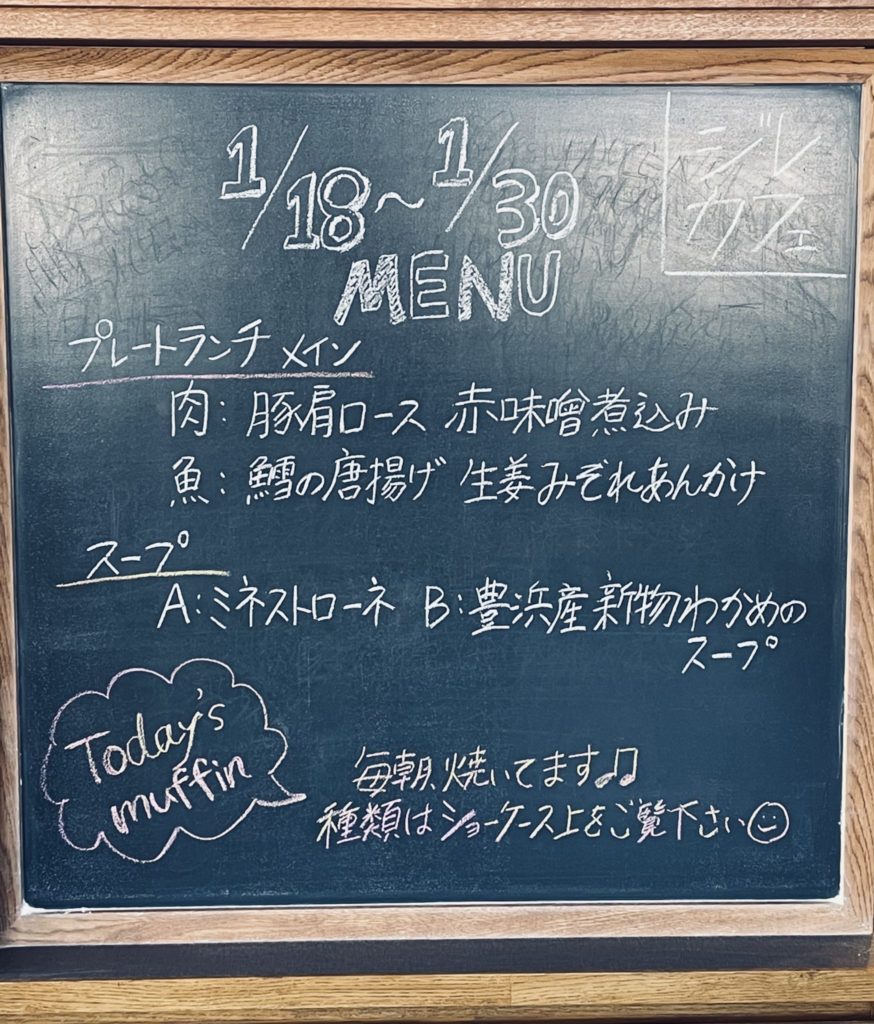 1/18～1/30
MENU
ジレ
カフェ
プレートランチ メイン
肉：豚肩ロース 赤味噌煮込み
魚：鱈の唐揚げ 生姜みぞれあんかけ
スープ
A：ミネストローネ B：豊浜産新物わかめの
スープ
Today's
muffin
毎朝焼いてます♫
種類はショーケース上をご覧下さい☺